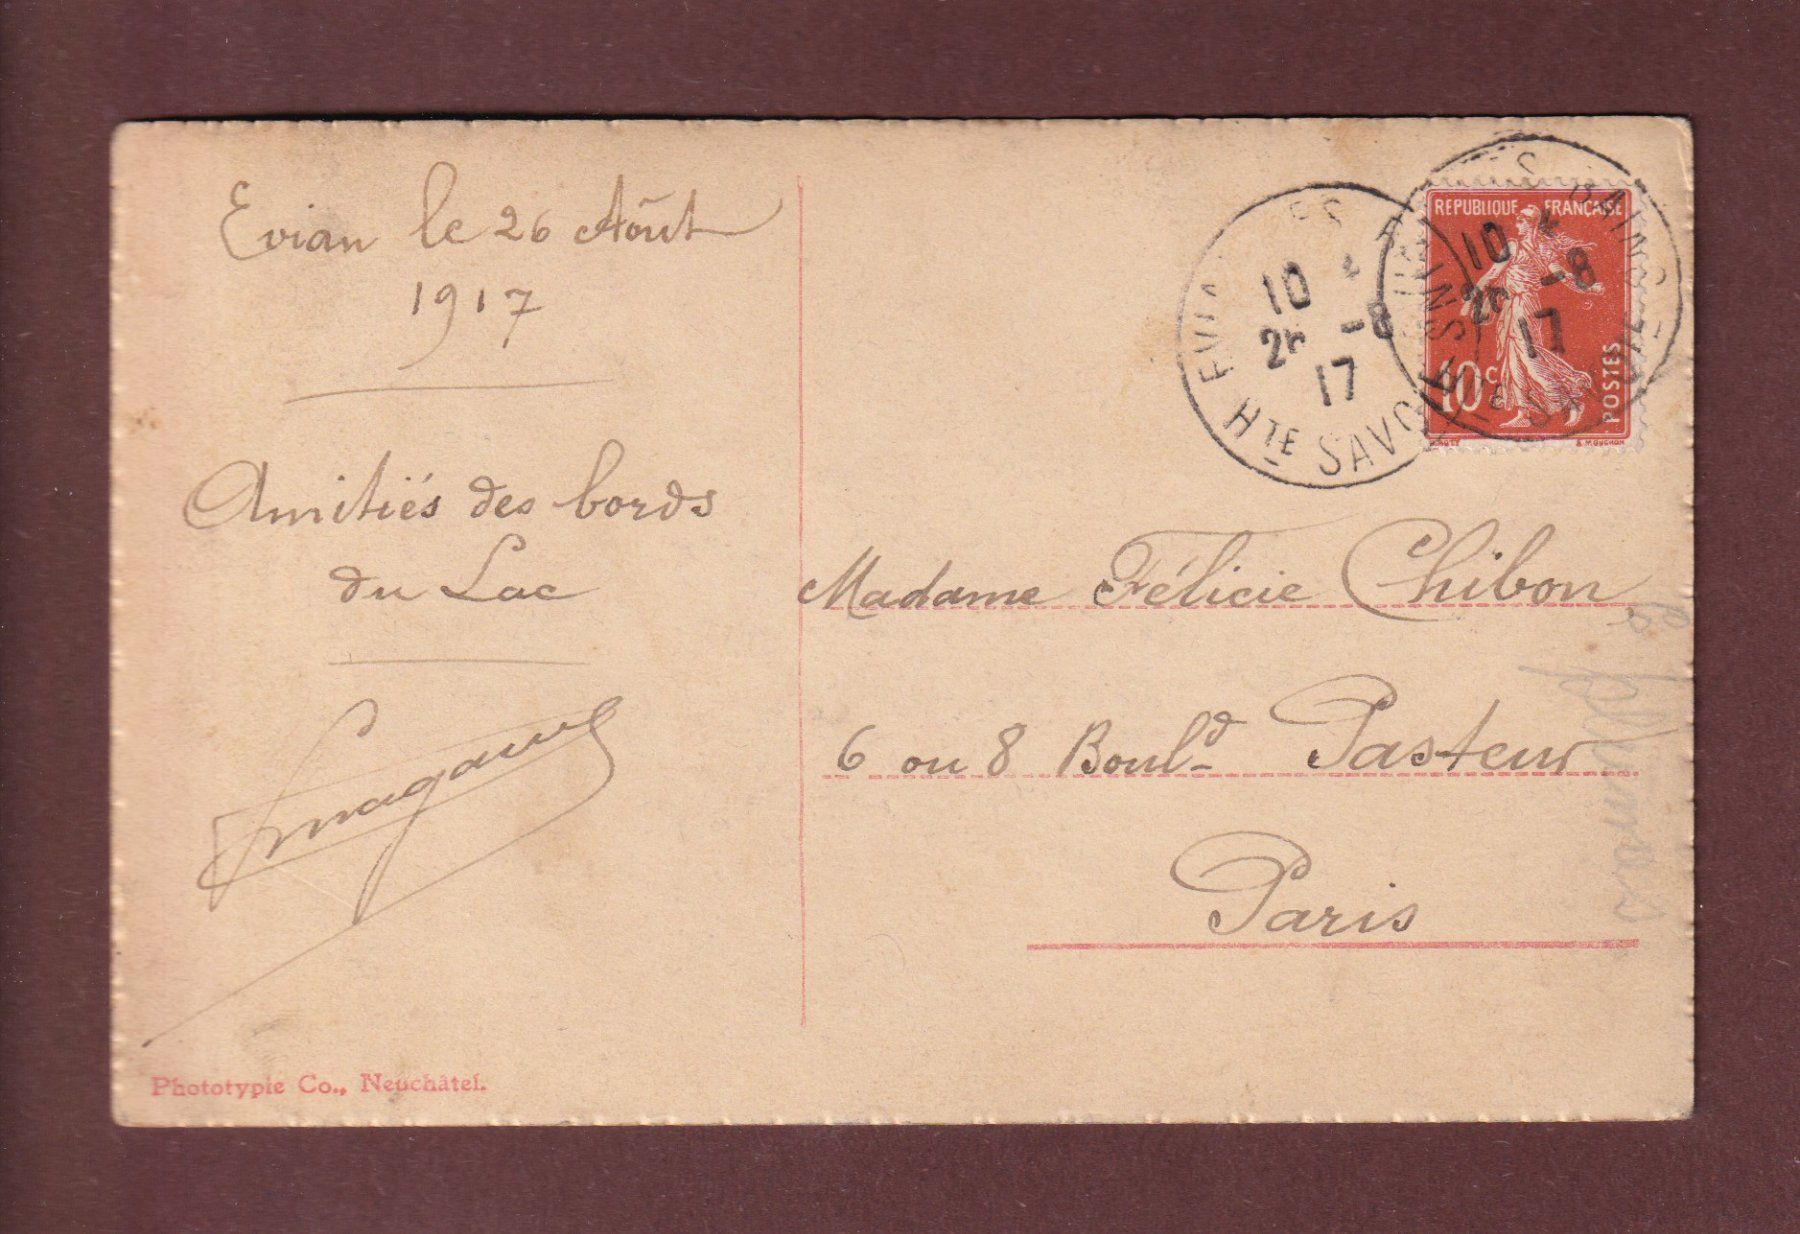 Evian le 26 Août
1917
Amitiés des bords
du Lac
Phototypie Co., Neuchâtel.
REPUBLIQUE FRANÇAISE
10c
POSTES
EVIAN LES BAINS
10
26 -8
17
HTE SAVOIE
10
26 -8
17
Madame Félicie Chibon
6 ou 8 Bould Pasteur
Paris